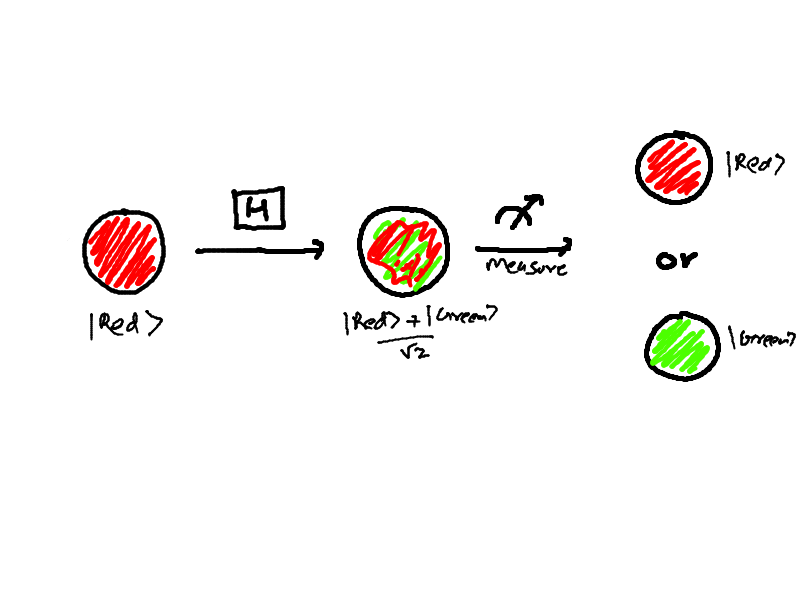 |Red⟩
H
|Red⟩ + |Green⟩
√2
Measure
|Red⟩
or
|Green⟩